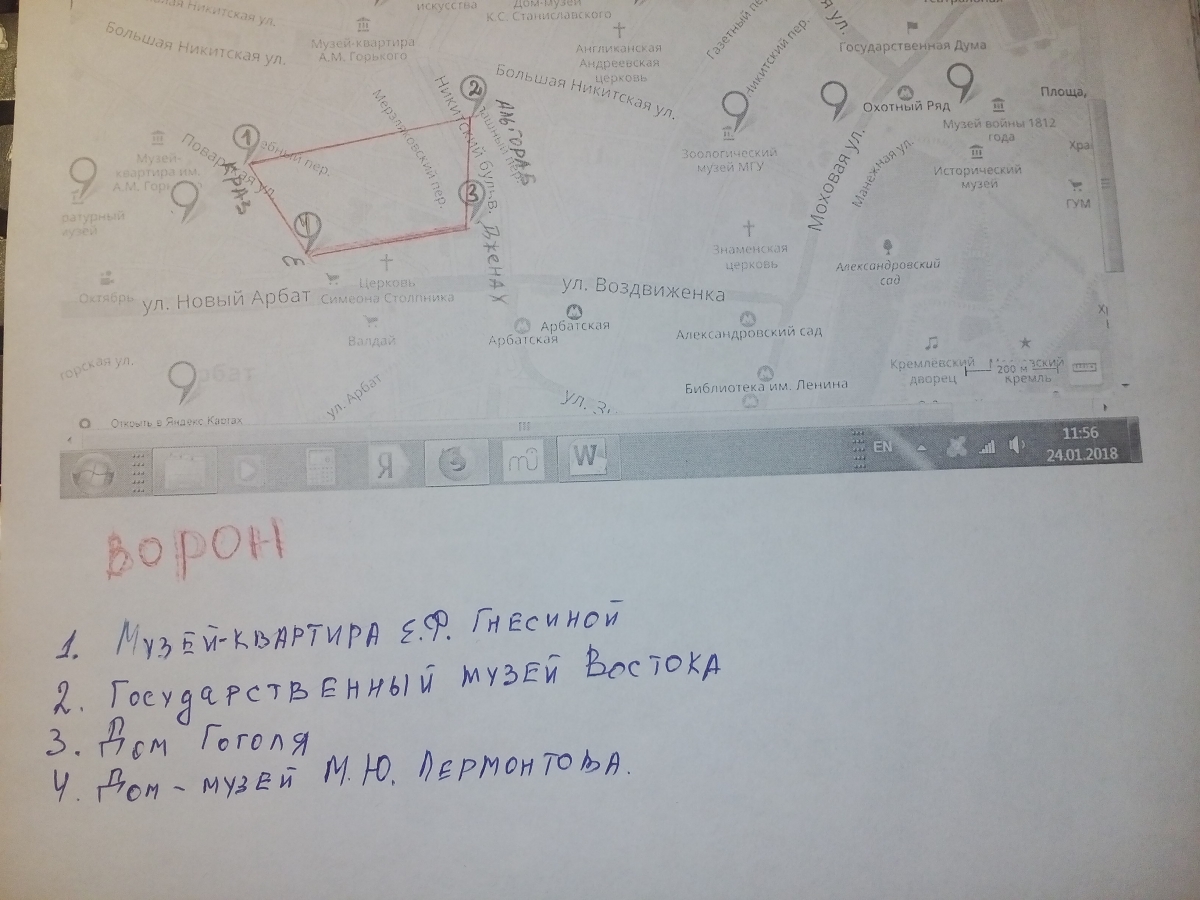 искусства
Дом-музей
К.С. Станиславского
Никитская ул.
Большая Никитская ул.
Музей-квартира
А.М. Горького
Англиканская
Андреевская
церковь
Газетный пер.
Никитский пер.
ул.
Театральная
Государственная Дума
Большая Никитская ул.
Охотный Ряд
Площа,
Музей войны 1812
года
Мерзляковский пер.
Никитский бульв.
АЛЬГОРАБ
1
2
3
4
Поварская ул.
ебный пер.
КРАЗ
Музей-
квартира им.
А.М. Горь
ратурный
музей
Зоологический
музей МГУ
Моховая ул.
Манежная ул.
Исторический
музей
Хра
ГУМ
ДЖЕНАХ
Ɛ
Церковь
Симеона Столпника
Знаменская
церковь
Александровский
сад
Октябрь
ул. Новый Арбат
ул. Воздвиженка
Арбатская
Арбатская
Александровский сад
Валдай
Кремлёвский
дворец
Кремль
200 м
горская ул.
рбат
ул. Арбат
Библиотека им. Ленина
Открыть в Яндекс.Картах
Я
W
EN
11:56
24.01.2018
ВОРОН
1. Музей-квартира Е.Ф. Гнесиной
2. Государственный музей Востока
3. Дом Гоголя
4. Дом-музей М.Ю. Лермонтова.